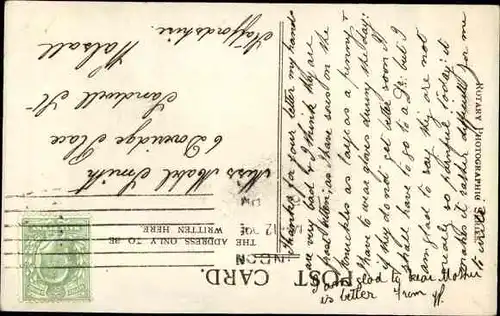 POST CARD.
THE ADDRESS ONLY TO BE
WRITTEN HERE
ROTARY PHOTOGRAPHIC
Miss Mabel Smith
6 Doveridge Place
Sandwell St
Walsall
Staffordshire.
Thanks for your letter my hands
are very bad & I think they are
frost bitten, as I have sores on the
knuckles as large as a penny &
have to wear gloves during the day:
if they do not get better soon I
shall have to go to a Dr. but I
am glad to say they are not
nearly as painful today: it
makes it rather difficult for me
to write
I am glad to hear Mother
is better
From